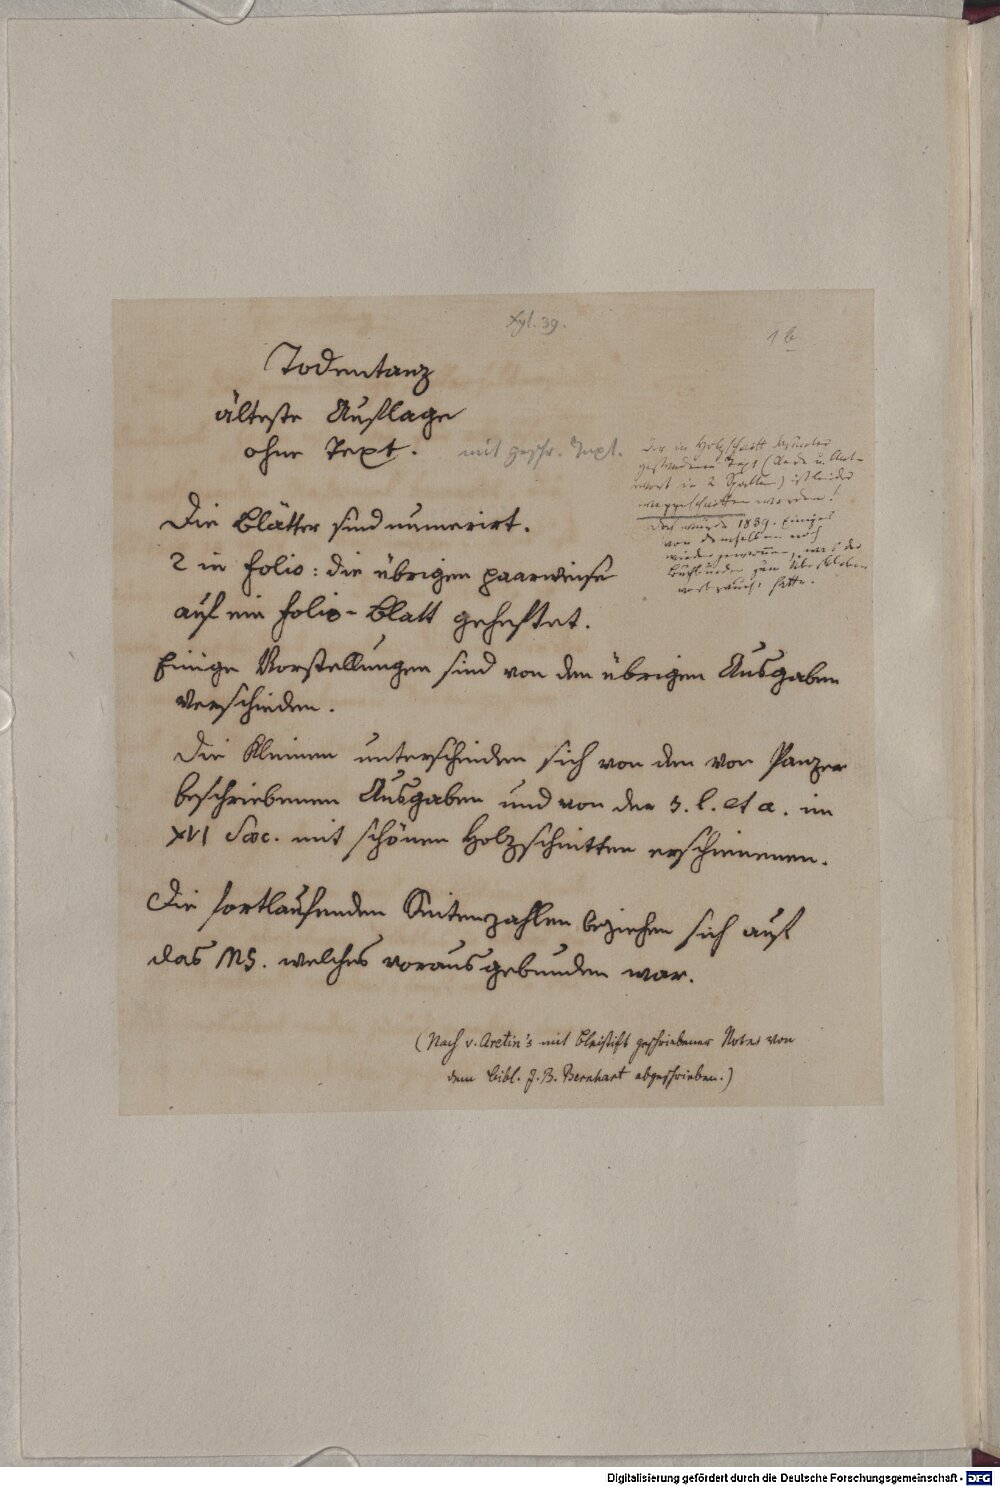 Xyl. 39.
1 b
Todentanz
älteste Auflage
ohne Text. mit geschr. Text.
Der in Holzschnitt darunter
gestandene Text (Rede u. Ant-
wort in 2 Spalten) ist leider
weggeschnitten worden!
Doch wurde 1839. Einiges
von demselben noch
wieder gewonnen, was der
Buchbinder zum Überkleben
verbraucht hatte.
Die Blätter sind numerirt.
2 in Folio: die übrigen paarweise
auf ein Folio-Blatt geheftet.
Einige Vorstellungen sind von den übrigen Ausgaben
verschieden.
Die Kleinen unterscheiden sich von den von Panzer
beschriebenen Ausgaben und von der s. l. et a. im
XVI Sæc. mit schönen Holzschnitten erschienenen.
Die fortlaufenden Seitenzahlen beziehen sich auf
das MS. welches vorausgebunden war.
(Nach v. Aretin's mit Bleistift geschriebener Note von
dem Bibl. J. B. Bernhart abgeschrieben.)
Digitalisierung gefördert durch die Deutsche Forschungsgemeinschaft - DFG